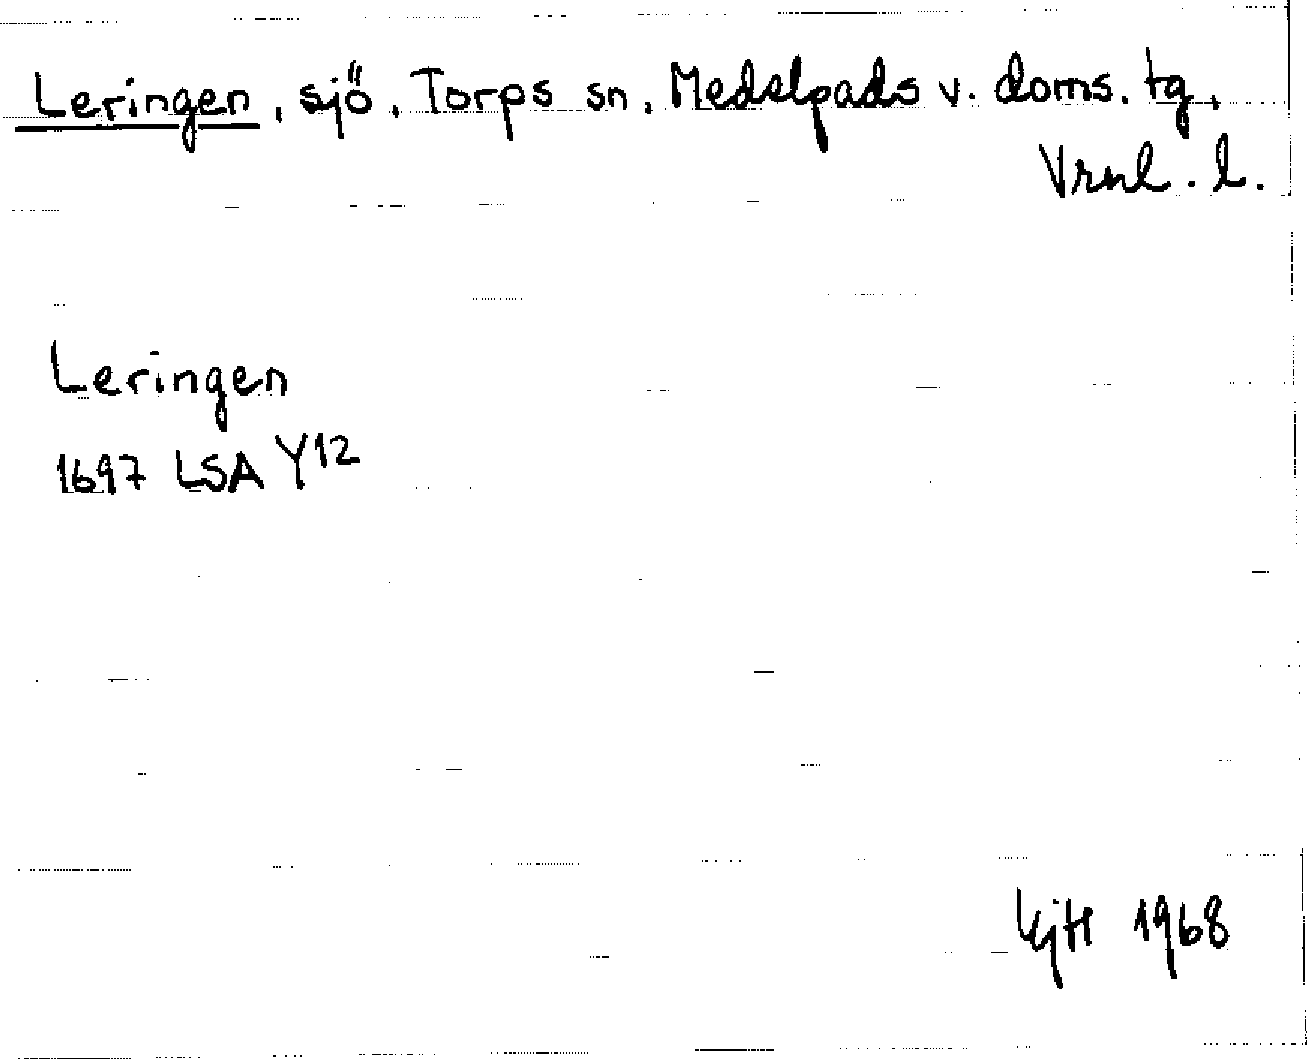 Leringen, sjö, Torps sn, Medelpads v. doms. tg,
Vrnl. l.
Leringen
1697 LSA Y12
1968